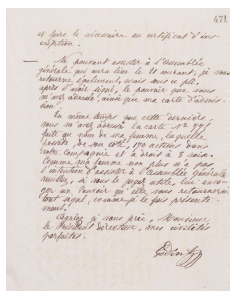 471
et faire le nécessaire au certificat d'ins-
cription.
Ne pouvant assister à l'Assemblée
générale qui aura lieu le 21 courant, je vous
retourne, également, sous ce pli,
après l'avoir signé, le pouvoir que vous
m'avez adressé, ainsi que ma carte d'admis-
sion.
En même temps que cette dernière,
vous m'avez adressé la carte N°
faite au nom de ma femme, laquelle
possède de son côté, 170 actions dans
votre Compagnie et a droit à 8 voix.
Comme ma femme non plus n'a pas
l'intention d'assister à l'assemblée générale
si vous le jugez utile, lui envo-
yer un Pouvoir qu'elle vous retournera
tout signé, comme je le fais présente-
ment.
Agréez, je vous prie, Monsieur
le Président directeur, mes civilités
parfaites.